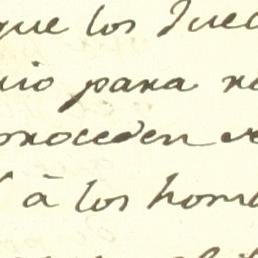 que los Juec
rio para re
proceden
à los hom